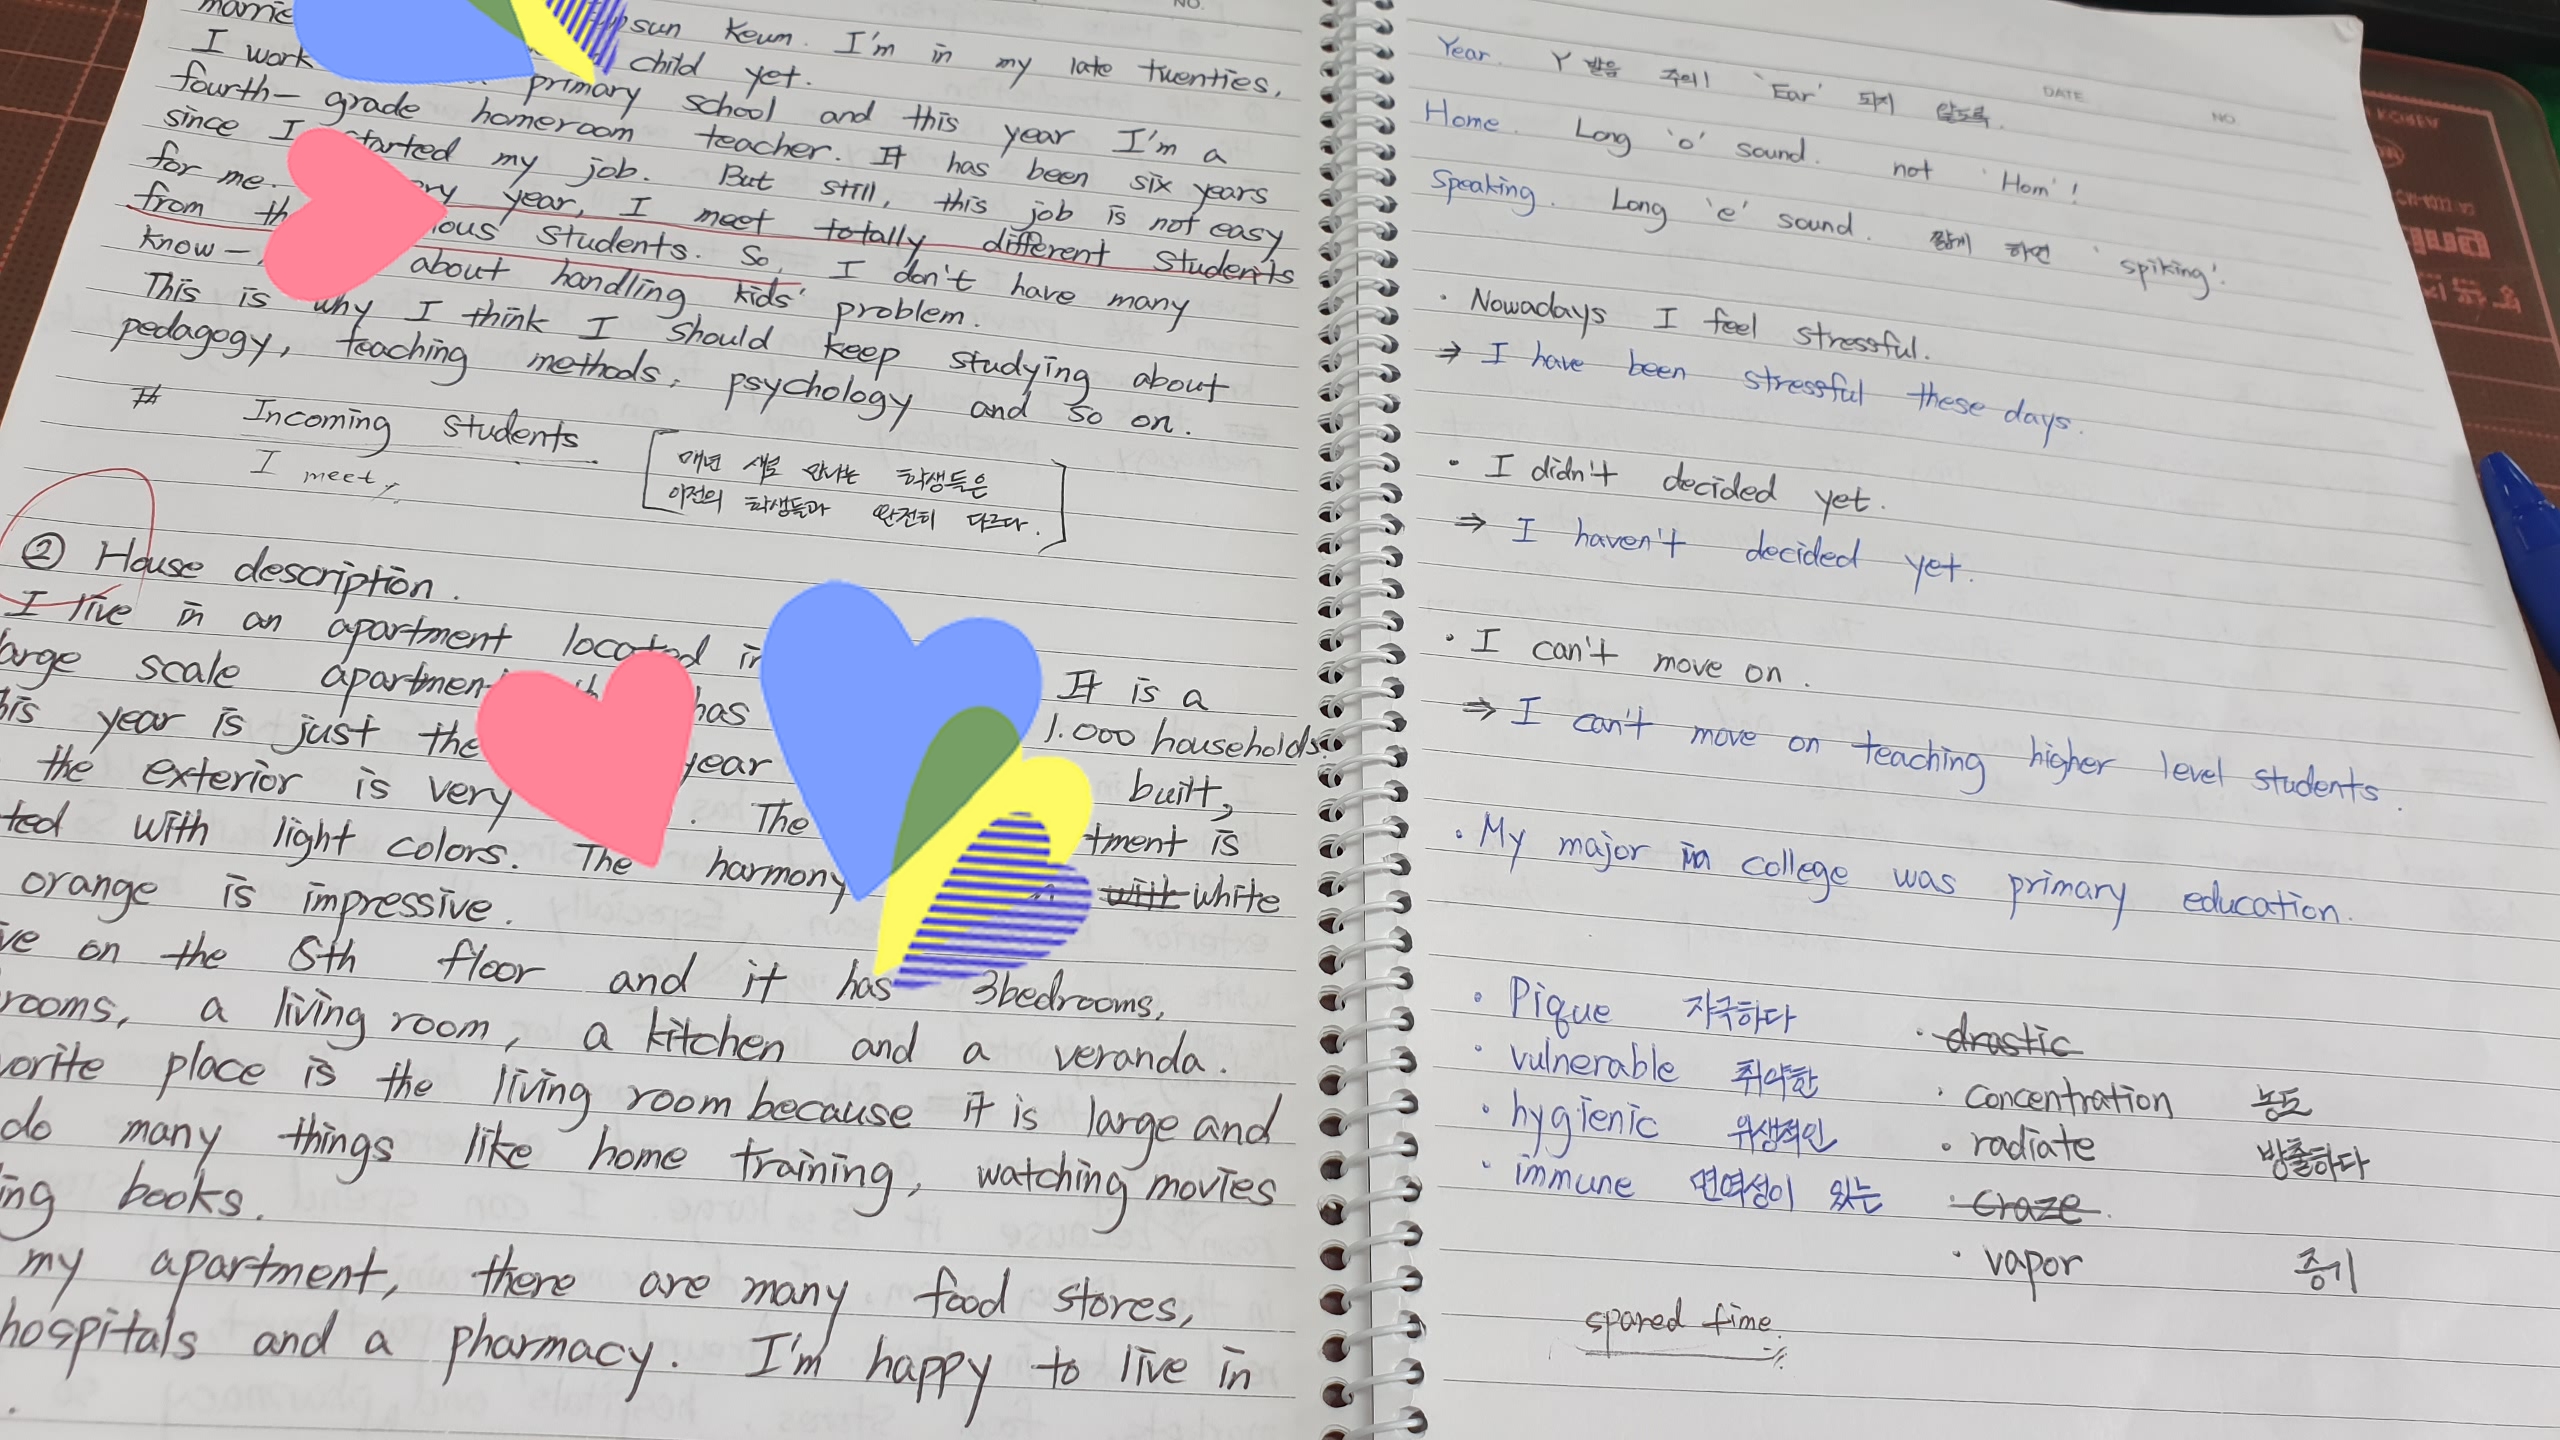 sun Keum. I'm in my late twenties,
child yet.
I work primary school and this year I'm a
fourth- grade homeroom teacher. It has been six years
since I started my job. But still, this job is not easy
for me. year, I meet totally different students
from students. So, I don't have many
know- about handling kids' problem.
This is why I think I should keep studying about
pedagogy, teaching methods, psychology and so on.
# Incoming students.
I meet
매년 새로 만나는 학생들은
이전의 학생들과 완전히 다르다.
② House description.
I live in an apartment located It is a
large scale has 1.000 households
year is just the year built,
the exterior is very . The is
with light colors. The harmony with white
orange is impressive.
on the 8th floor and it has 3bedrooms,
rooms, a living room, a kitchen and a veranda.
place is the living room because it is large and
do many things like home training, watching movies
books.
my apartment, there are many food stores,
hospitals and a pharmacy. I'm happy to live in
DATE NO.
Year. Y 발음 주의! 'Ear' 되지 않도록.
Home. Long 'o' sound. not 'Hom'!
Speaking. Long 'e' sound. 짧게 하면 'spiking'.
· Nowadays I feel stressful.
⇒ I have been stressful these days.
· I didn't decided yet.
⇒ I haven't decided yet.
· I can't move on.
⇒ I can't move on teaching higher level students.
· My major in college was primary education.
· Pique 자극하다 · drastic
· vulnerable 취약한 · concentration 농도
· hygienic 위생적인 · radiate 방출하다
· immune 면역성이 있는 · craze.
· vapor 증기
spared time.